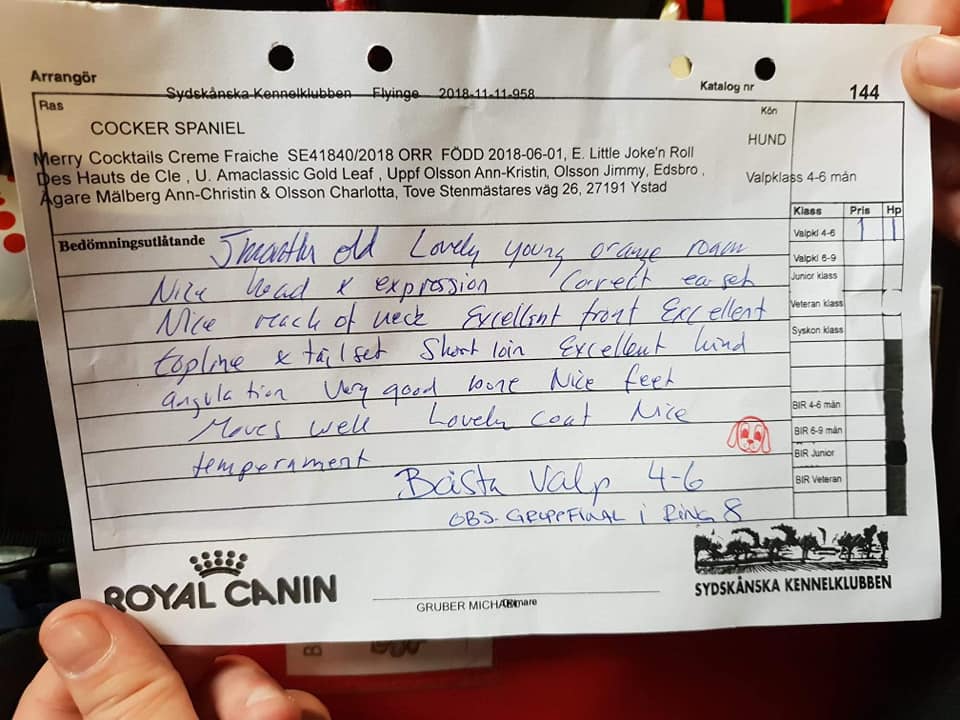 Arrangör
Sydskånska Kennelklubben Flyinge 2018-11-11-958
Katalog nr 144
Ras
COCKER SPANIEL
Kön
HUND
Merry Cocktails Creme Fraiche SE41840/2018 ORR FÖDD 2018-06-01, E. Little Joke'n Roll
Des Hauts de Cle , U. Amaclassic Gold Leaf , Uppf Olsson Ann-Kristin, Olsson Jimmy, Edsbro ,
Ägare Mälberg Ann-Christin & Olsson Charlotta, Tove Stenmästares väg 26, 27191 Ystad
Valpklass 4-6 mån
Klass Pris Hp
Valpkl 4-6 1 1
Valpkl 6-9
Junior klass
Veteran klass
Syskon klass
BIR 4-6 mån
BIR 6-9 mån
BIR Junior
BIR Veteran
Bedömningsutlåtande
5 month old Lovely young orange roan
Nice head & expression Correct ear set
Nice reach of neck Excellent front Excellent
topline & tailset Short loin Excellent hind
angulation Very good bone Nice feet
Moves well Lovely coat Nice
temperament
Bästa Valp 4-6
OBS. GRUPPFINAL i RING 8
ROYAL CANIN
GRUBER MICHAEL
SYDSKÅNSKA KENNELKLUBBEN